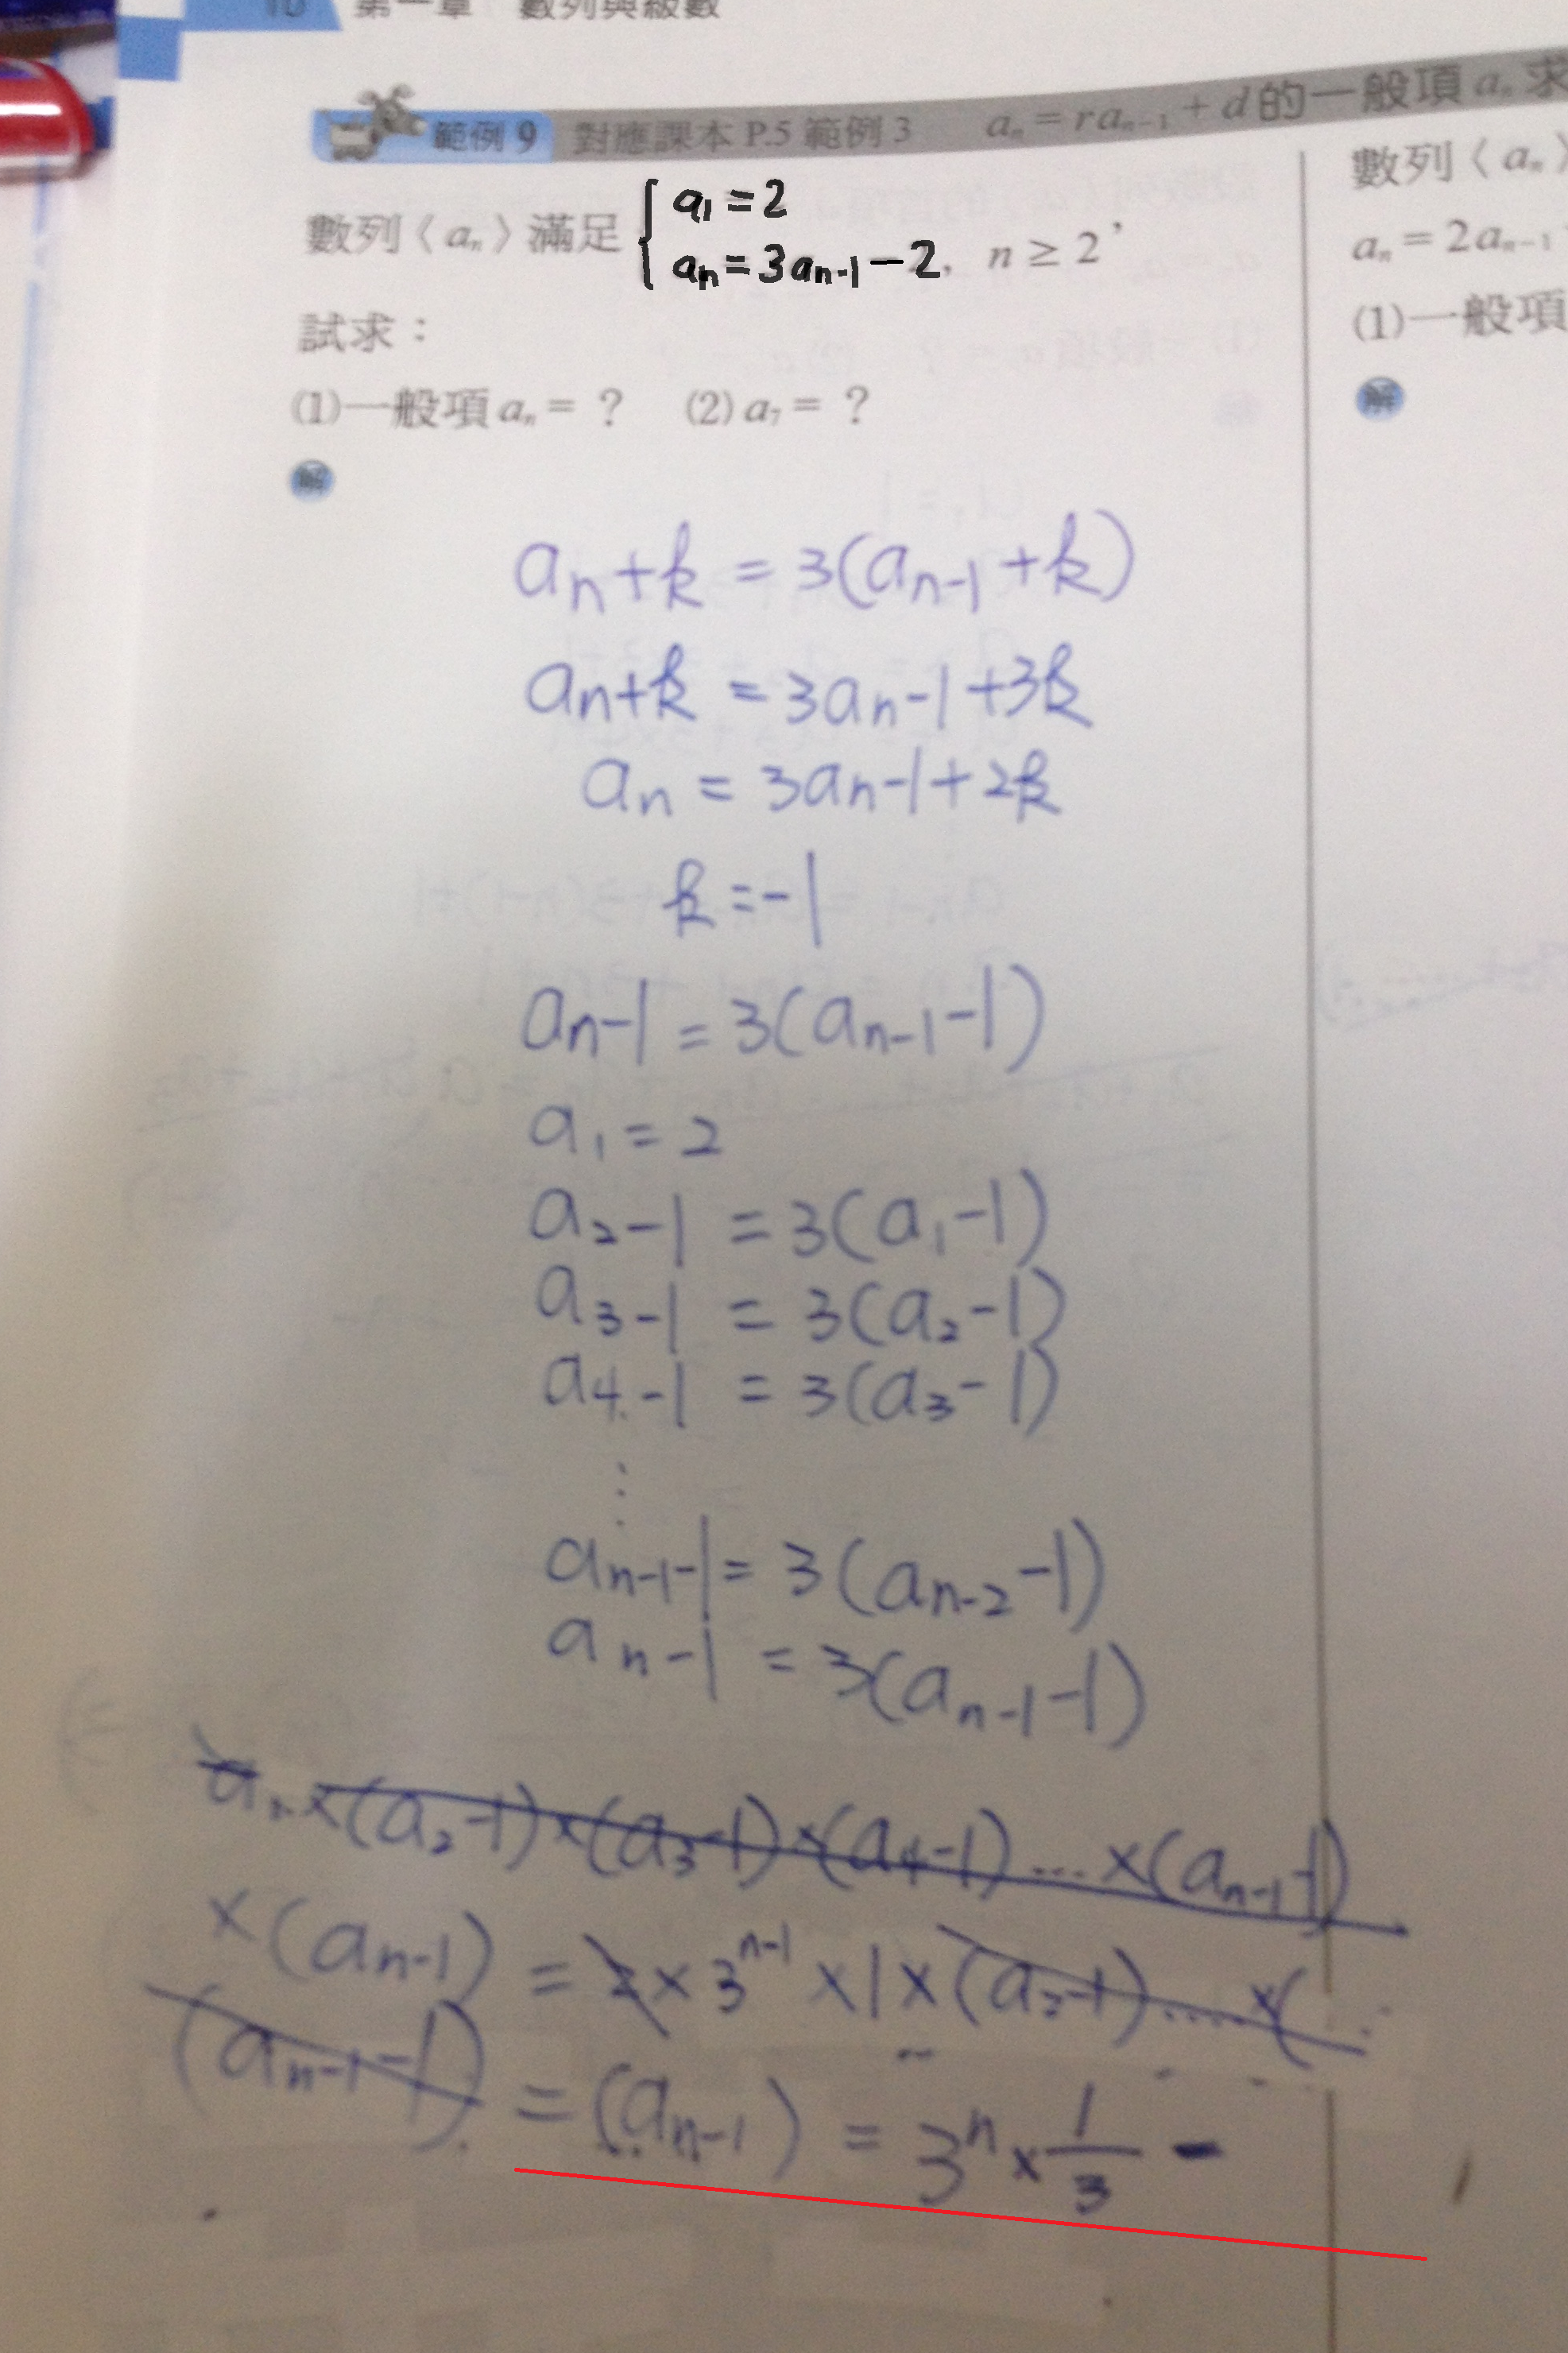 10 第一章 數列與級數
範例 9 對應課本 P.5 範例 3 aₙ = raₙ₋₁ + d 的一般項 aₙ 求
數列〈aₙ〉滿足 { a₁ = 2
aₙ = 3aₙ₋₁ − 2, n ≥ 2,
試求：
(1)一般項 aₙ = ? (2) a₇ = ?
解
aₙ + k = 3(aₙ₋₁ + k)
aₙ + k = 3aₙ₋₁ + 3k
aₙ = 3aₙ₋₁ + 2k
k = −1
aₙ − 1 = 3(aₙ₋₁ − 1)
a₁ = 2
a₂ − 1 = 3(a₁ − 1)
a₃ − 1 = 3(a₂ − 1)
a₄ − 1 = 3(a₃ − 1)
⋮
aₙ₋₁ − 1 = 3(aₙ₋₂ − 1)
aₙ − 1 = 3(aₙ₋₁ − 1)
×(a₂ − 1)×(a₃ − 1)×(a₄ − 1)....×(aₙ₋₁ − 1)
×(aₙ − 1) = 2 × 3ⁿ⁻¹ × 1 × (a₂ − 1).....×(
(aₙ₋₁ − 1) = (aₙ − 1) = 3ⁿ × 1/3 −
數列〈aₙ〉
aₙ = 2aₙ₋₁
(1)一般項
解